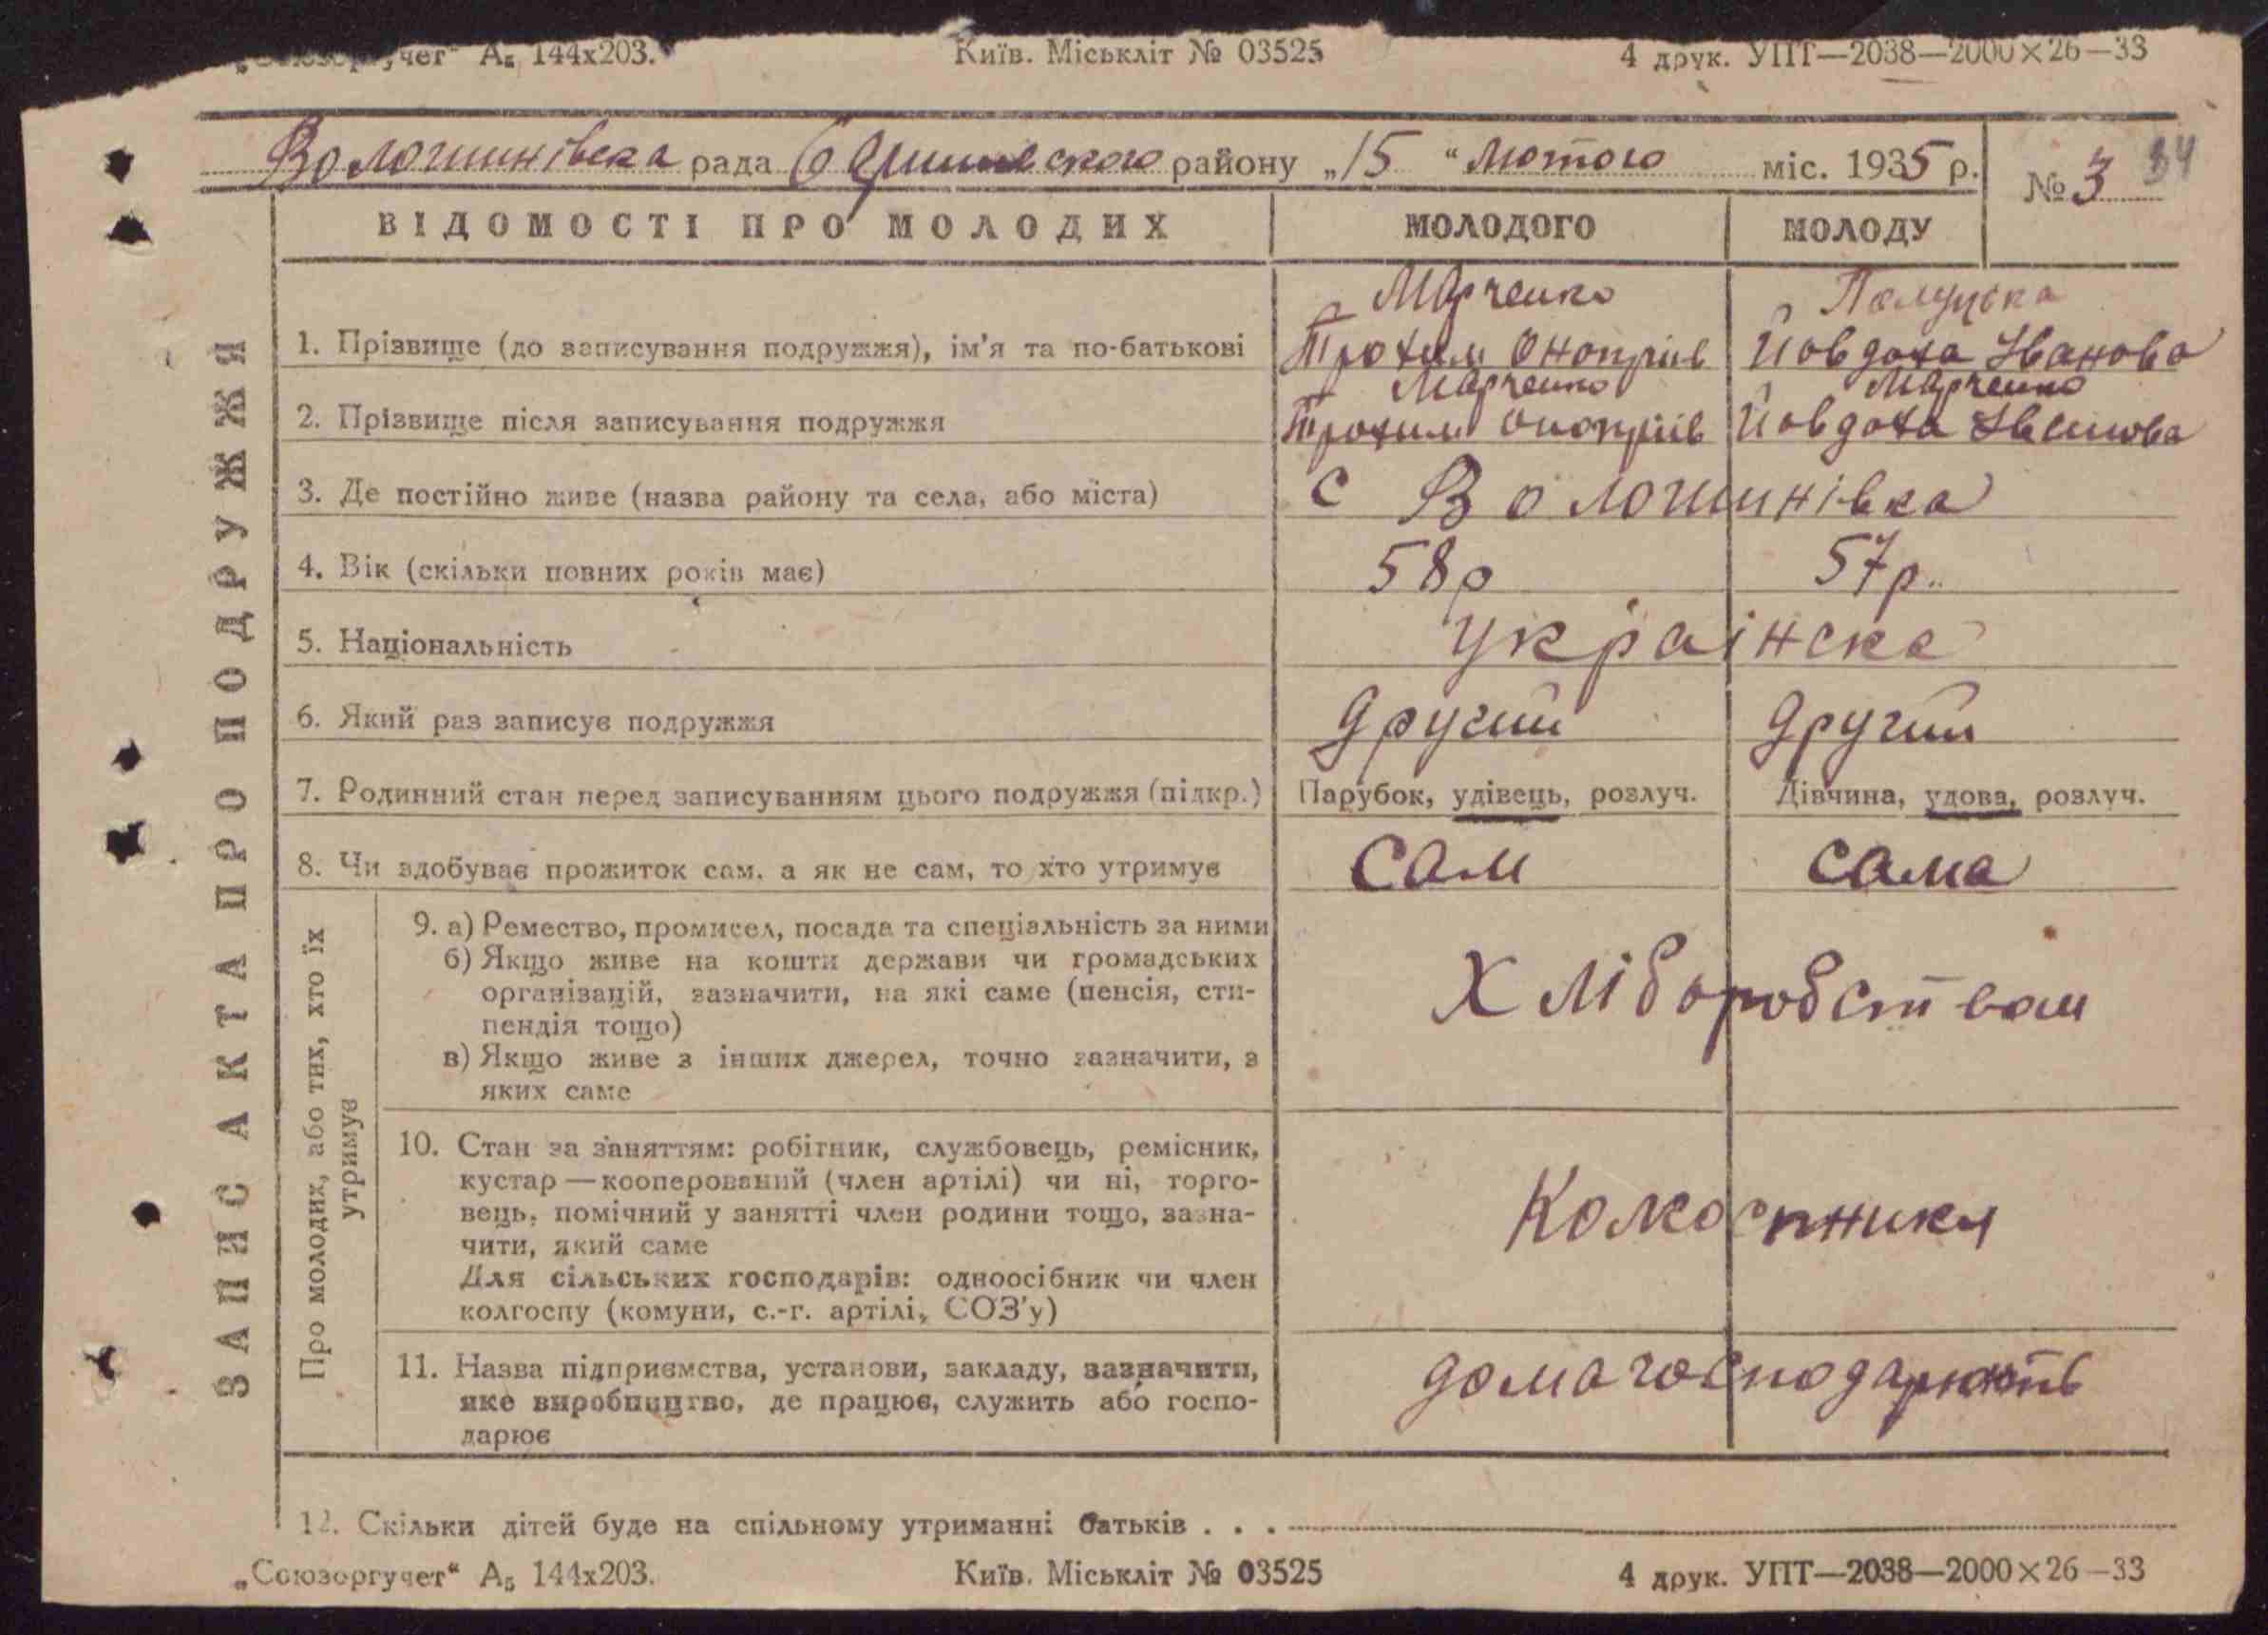 А₅ 144х203. Київ. Міськліт № 03525 4 друк. УПТ—2038—2000×26—33
Волошинівска рада Баришевскаго району „15 “ лютого міс. 1935 р. № 3 34
ВІДОМОСТІ ПРО МОЛОДИХ МОЛОДОГО МОЛОДУ
ЗАПИС АКТА ПРО ПОДРУЖЖЯ
Марченко
1. Прізвище (до записування подружжя), ім’я та по-батькові Трохим Оноприів Йовдоха Іванова
Марченко Марченко
2. Прізвище після записування подружжя Трохим Оноприів Йовдоха Іванова
3. Де постійно живе (назва району та села, або міста) С Волошинівка
4. Вік (скільки повних років має) 58р 57р.
5. Національність українска
6. Який раз записує подружжя другий другий
7. Родинний стан перед записуванням цього подружжя (підкр.) Парубок, удівець, розлуч. Дівчина, удова, розлуч.
8. Чи здобуває прожиток сам, а як не сам, то хто утримує сам сама
Про молодих, або тих, хто їх
утримує
9. а) Ремество, промисел, посада та спеціальність за ними
б) Якщо живе на кошти держави чи громадських
організацій, зазначити, на які саме (пенсія, сти-
пендія тощо)
в) Якщо живе з інших джерел, точно зазначити, з
яких саме
Хліборобством
10. Стан за заняттям: робітник, службовець, ремісник,
кустар — кооперований (член артілі) чи ні, торго-
вець, помічний у занятті член родини тощо, зазна-
чити, який саме
Для сільських господарів: одноосібник чи член
колгоспу (комуни, с.-г. артілі, СОЗ’у)
Колхоспники
11. Назва підприємства, установи, закладу, зазначити,
яке виробництво, де працює, служить або госпо-
дарює
дома господарюють
12. Скільки дітей буде на спільному утриманні батьків . . .
„Союзоргучет“ А₅ 144х203. Київ. Міськліт № 03525 4 друк. УПТ—2038—2000×26—33